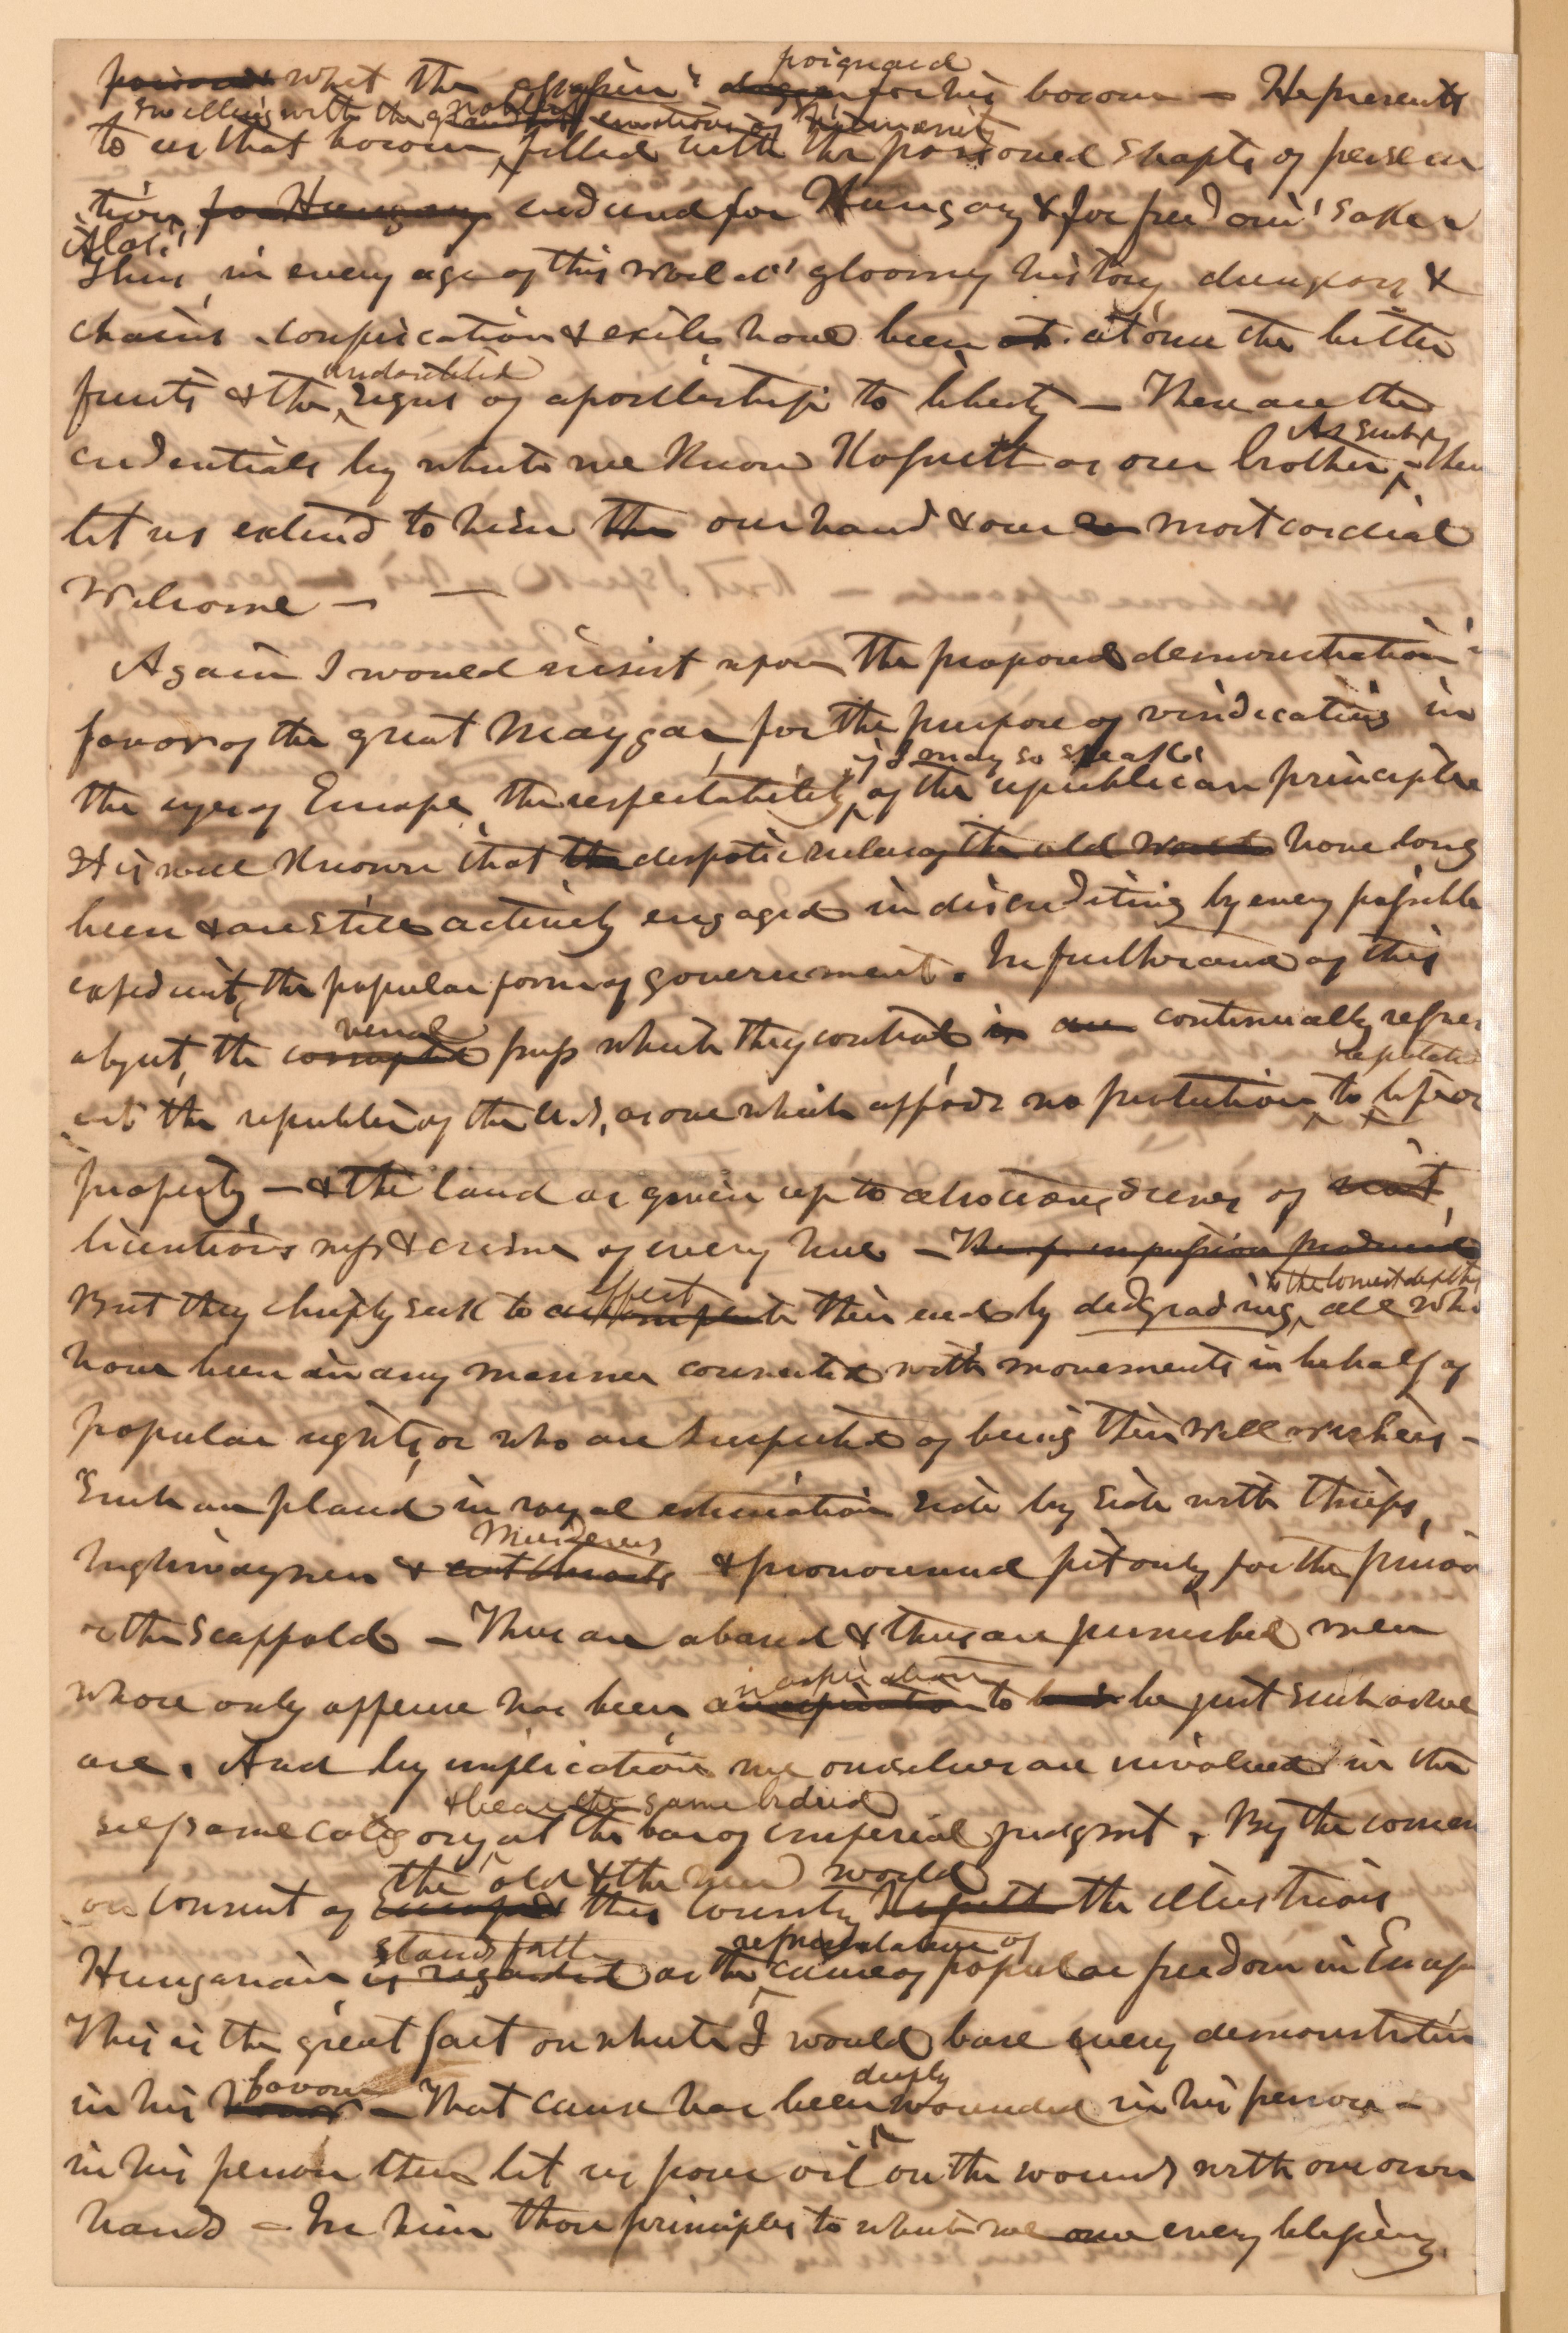 poignard
what the assassin's dagger for his bosom — He presents
swelling with the noblest emotions of humanity
to us that bosom, filled with the poisoned shafts of persecu
tion for Hungary endured for Hungary & for freedom's sake.
Alas!
Thus, in every age of this world's gloomy history, dungeons &
chains confiscation & exile have been at at once the bitter
undoubted
fruits & the signs of apostleship to liberty — These are the
As such,
credentials by which we know Kossuth as our brother, — then
let us extend to him the our hand & our most cordial
Welcome —  —
Again I would insist upon the proposed demonstration in
favor of the great Maygar, for the purpose of vindicating in
if I may so speak
the eyes of Europe, the respectability, of the republican principle
It is well known that the despotic rulers of the old world have long
been & are still actively engaged in discrediting by every possible
expedient, the popular form of government. In furtherance of this
venal
object, the corrupted press which they control is are continually repres
reputation
ent the republic of the U.S, as one which affords no protection, to life or
property, — & the land as given up to atrocious scenes of riot,
licentiousness & crime of every hue — The impression produced
effect to the lowest depths
But they chiefly seek to accomplish their ends by dedgrading, all who
have been in any manner connected with movements in behalf of
popular rights, or who are suspected of being their well wishers —
Such are placed in royal estimation side by side with thieves,
Murderers
highwaymen & cut throats & pronounced fit only for the prison
or the scaffold — Thus are abased & thus are punished men
aspiration
whose only offense has been an aspiration to be just such as we
are. And by implication we ourselves are involved in the
& hear the same
selfsame category, at the bar of imperial judgmt. By the comm
the old & the new world
on consent of Europe this country Kossuth the illustrious
stands forth representative of
Hungarian is regarded as the cause of popular freedom in Europe
This is the great fact on which I would base every demonstration
favour deeply
in his honor — That cause has been wounded in his person —
in his person then let us pour oil on the wounds with our own
hands — In him those principles to which we owe every blessing